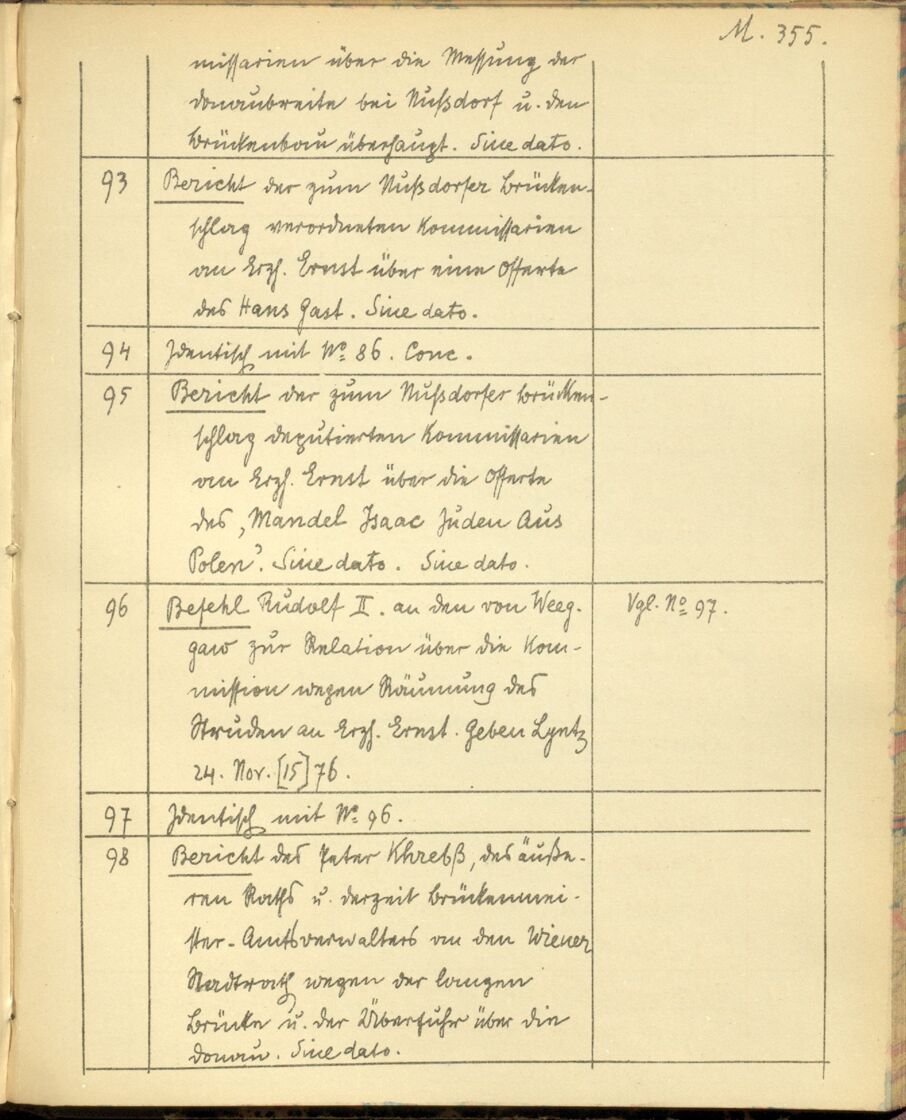 M. 355.
missarien über die Messung der
Donaubreite bei Nußdorf u. den
Brückenbau überhaupt. Sine dato.
93 Bericht der zum Nußdorfer Brücken-
schlag verordneten Kommissarien
an Erzh. Ernst über eine Offerte
des Hans Gast. Sine dato.
94 Identisch mit No 86. Conc.
95 Bericht der zum Nußdorfer Brücken-
schlag deputierten Kommissarien
an Erzh. Ernst über die Offerte
des „Mandel Isaac Juden Aus
Polen“. Sine dato. Sine dato.
96 Befehl Rudolf II. an den von Weeg- Vgl. No 97.
gaw zur Relation über die Kom-
mission wegen Räumung des
Struden an Erzh. Ernst. Geben Lyntz
24. Nov. [15]76.
97 Identisch mit No 96.
98 Bericht des Peter Khrebß, des äuße-
ren Raths u. derzeit Brückenmei-
ster-Amtsverwalters an den Wiener
Stadtrath wegen der langen
Brücke u. der Überfuhr über die
Donau. Sine dato.